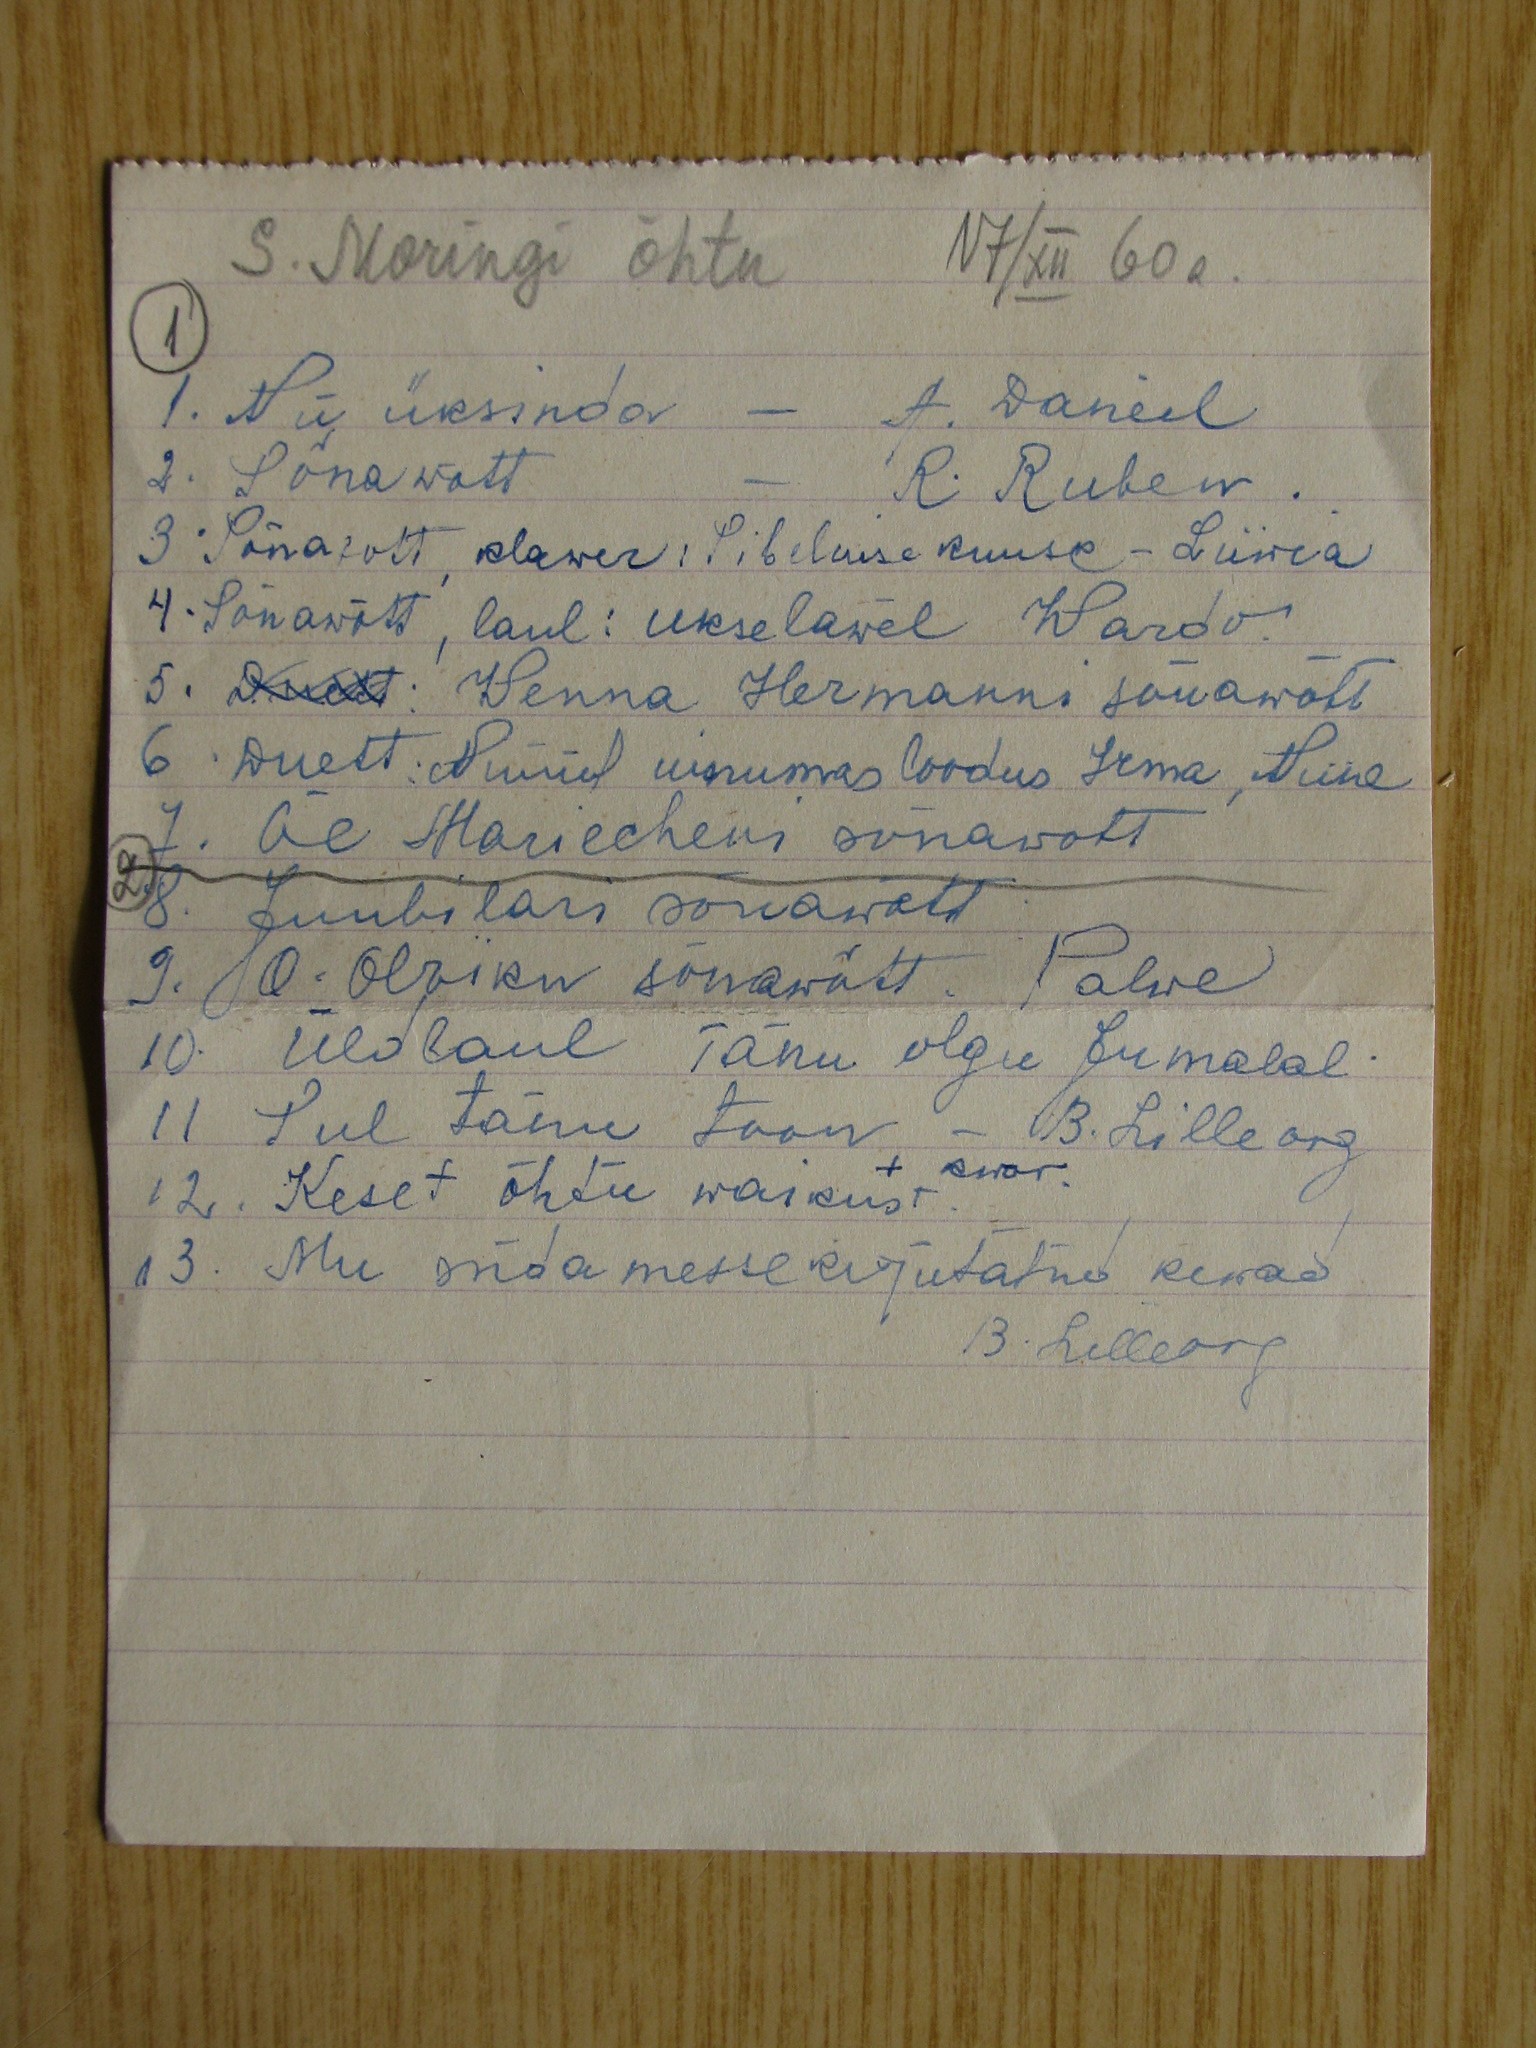 S. Moringi õhtu 17/XII 60 a.
1
1. Nii üksinda — A. Daniel
2. Sõnawõtt — R. Ruben.
3. Sõnawõtt, klawer: Sibeliuse kuusk - Liiwia
4. Sõnawõtt, laul: ukseläwel Wardo.
5. Duett: Wenna Hermanni sõnawõtt
6. Duett: Nüüd uinumas loodus Irma, Niine
7. Õe Mariecheni sõnawõtt
2
8. Juubilari sõnawõtt
9. O. Olwiku sõnawõtt. Palwe
10. Üldlaul Tänu olgu Jumalal.
11 Sul tänu toon - B. Lilleorg
12. Keset õhtu waikust + kwar.
13. Mu südamesse kujutatud kewad
B. Lilleorg